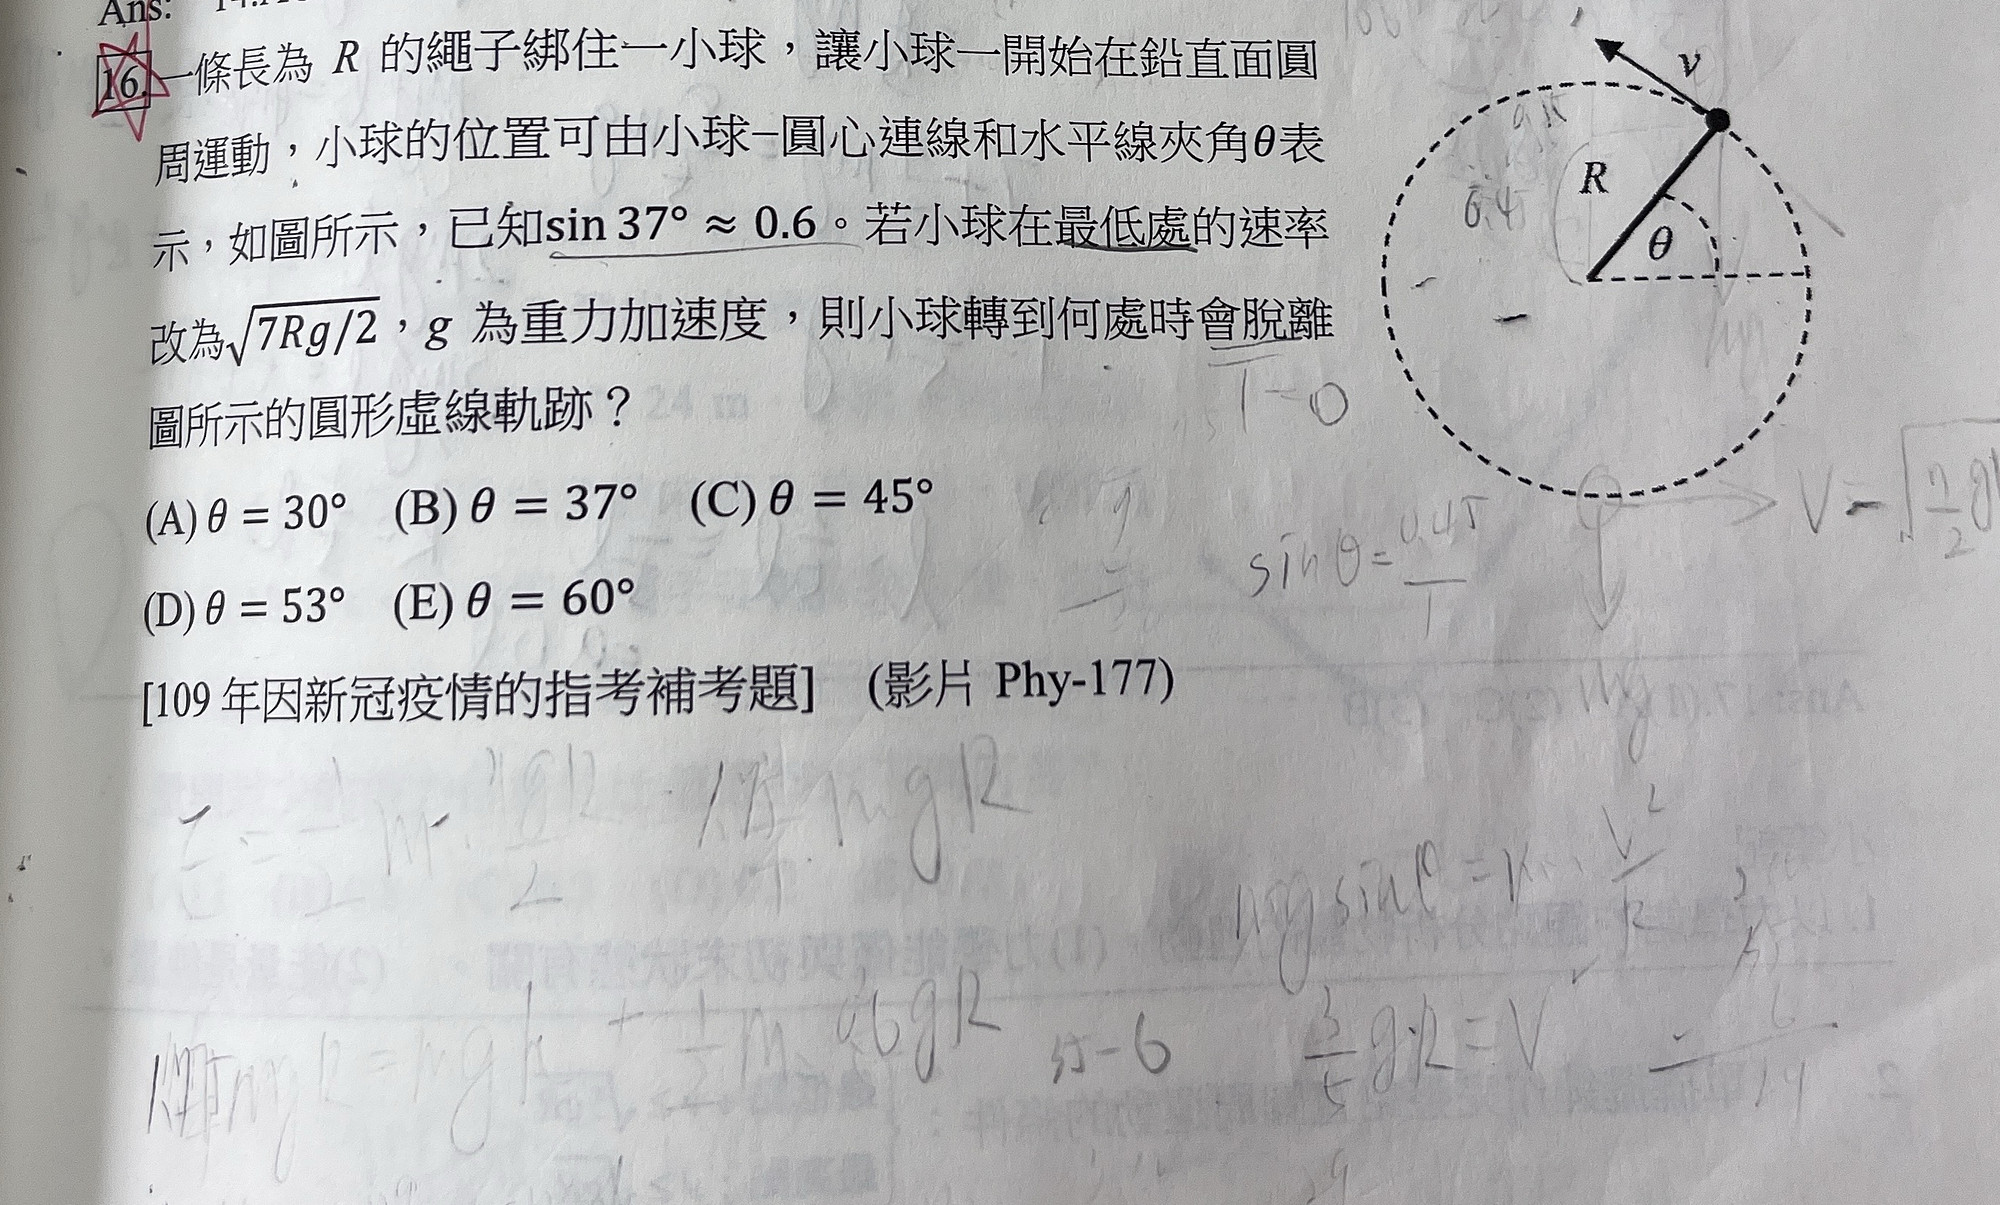 Ans:
16. 一條長為 R 的繩子綁住一小球，讓小球一開始在鉛直面圓
周運動，小球的位置可由小球–圓心連線和水平線夾角θ表
示，如圖所示，已知sin 37° ≈ 0.6。若小球在最低處的速率
改為√7Rg/2，g 為重力加速度，則小球轉到何處時會脫離
圖所示的圓形虛線軌跡？
(A) θ = 30° (B) θ = 37° (C) θ = 45°
(D) θ = 53° (E) θ = 60°
[109 年因新冠疫情的指考補考題] (影片 Phy-177)
v
R
θ
T=0
sinθ= 0.45/1
mg
mg sinθ = m · v²/R
3/5 gR = V²
55-6